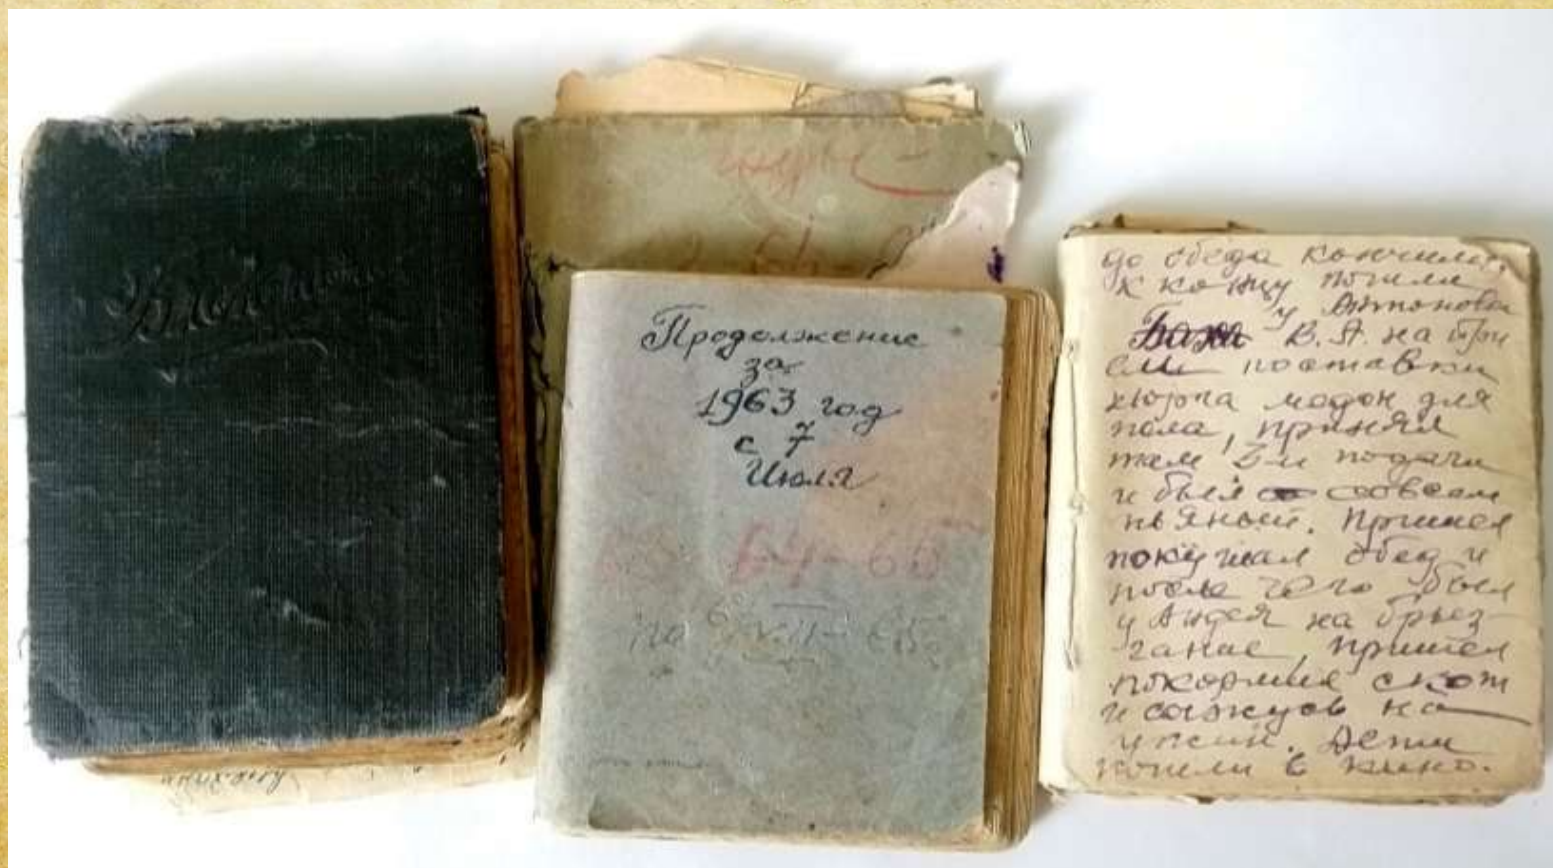 Блокнот
64
Продолжение
за
1963 год
с 7
Июля
64-65
по
до обеда кончили,
к концу пошли
у Антоновы
В. А. на
поставки
для
пола, принял
там 5-и подачи
и был совсем
пьяный. Пришел
покушал обед и
после чего был
у Андея на брыз-
гание, пришел
покормил скот
и сажусь на
ужин. Дети
пошли в кино.